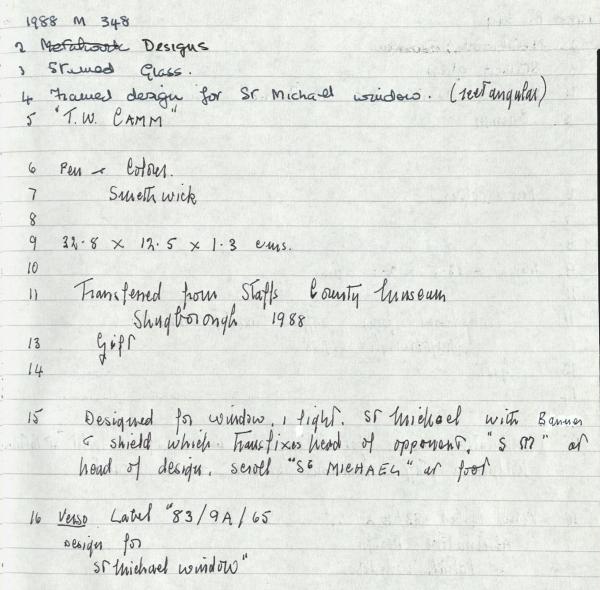 1988 M 348
2 Metalwork Designs
3 Stained Glass.
4 Framed design for St Michael window. (rectangular)
5 "T.W. CAMM"
6 Pen & Colour.
7 Smethwick
8
9 32.8 x 12.5 x 1.3 cms.
10
11 Transferred from Staffs County Museum
Shugborough 1988
13 Gift
14
15 Designed for window, 1 light. St Michael with Banner
& shield which transfixes head of opponent. "S M" at
head of design. scroll "St MICHAEL" at foot
16 Verso Label "83/9A/65
Design for
St Michael window"